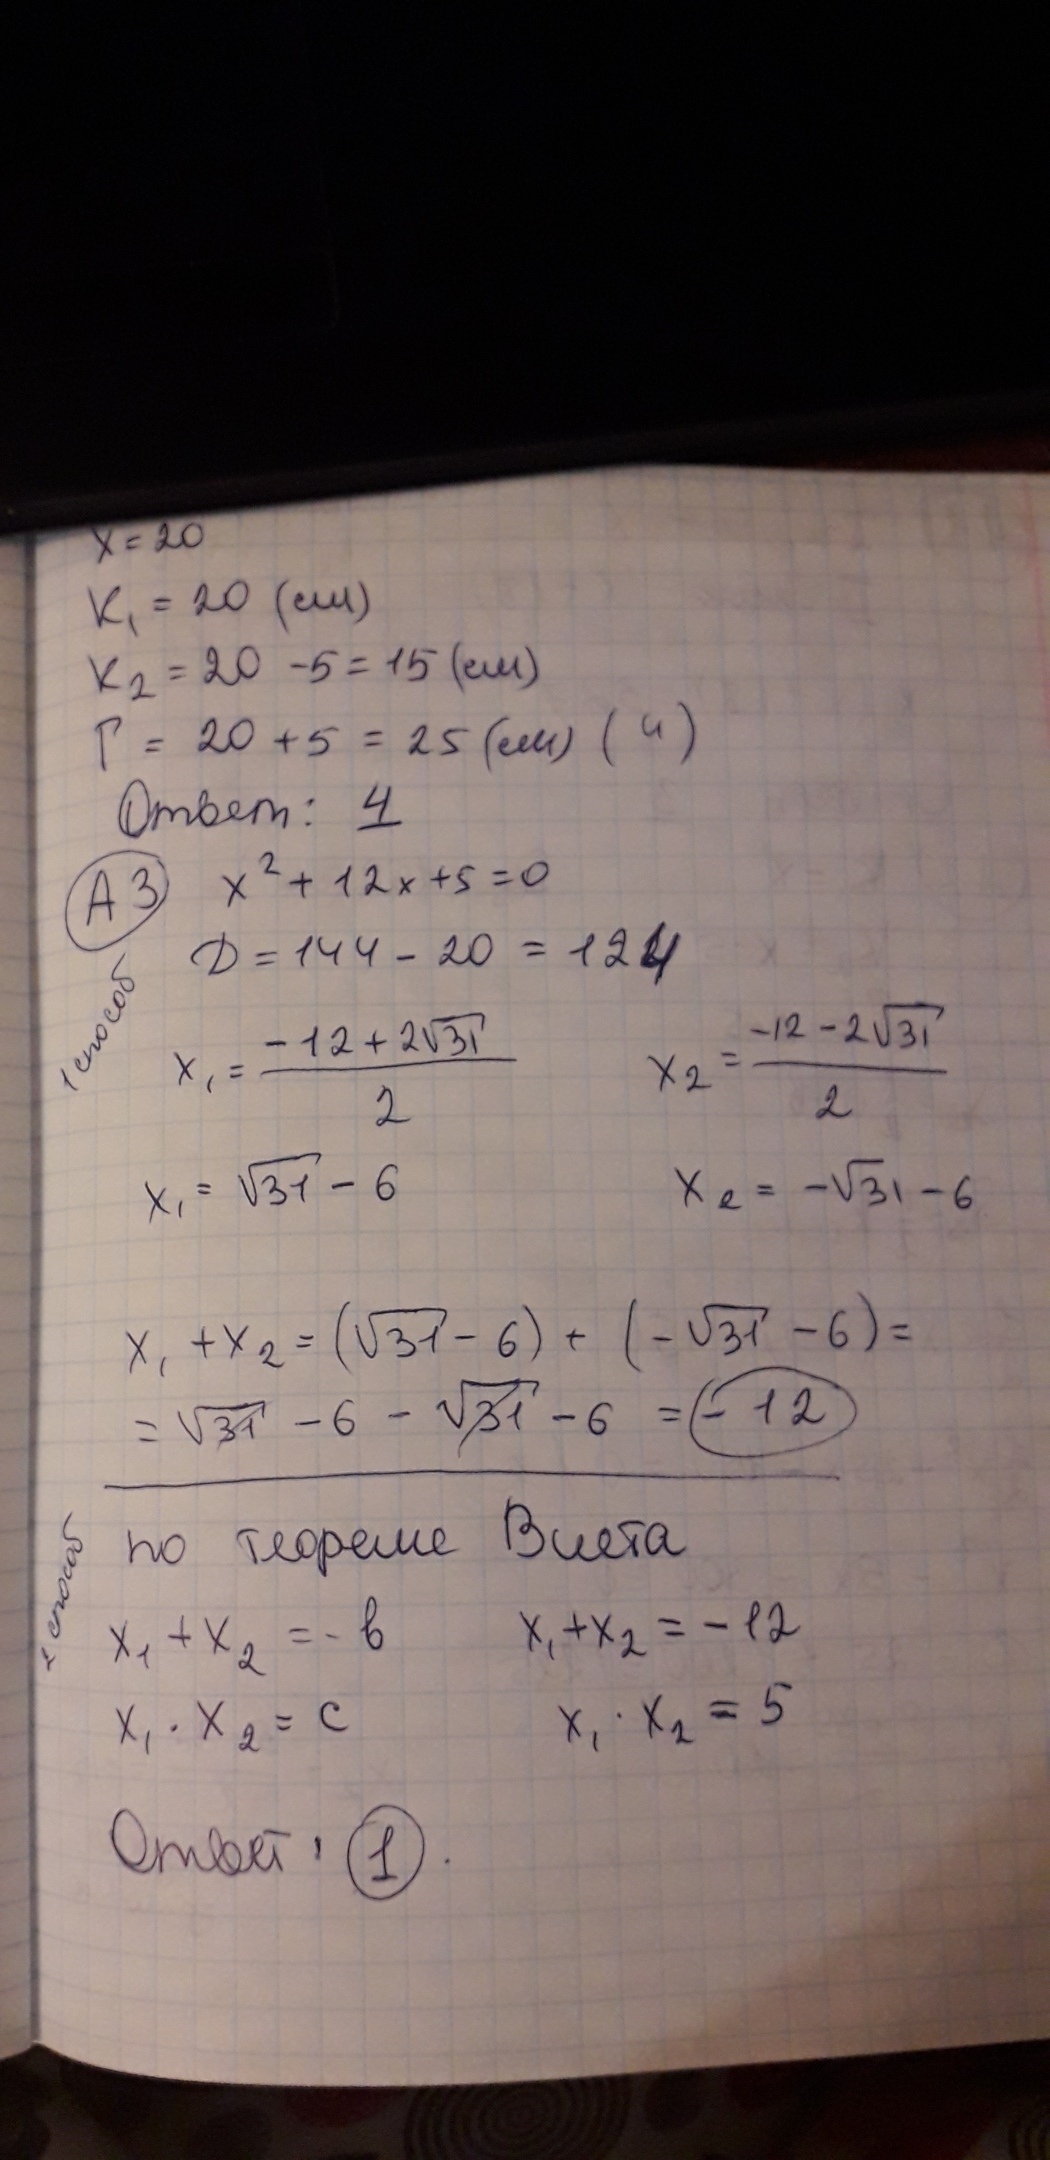 x = 20
K₁ = 20 (см)
K₂ = 20 - 5 = 15 (см)
Г = 20 + 5 = 25 (см) (4)
Ответ: 4
А3 x² + 12x + 5 = 0
1 способ
D = 144 - 20 = 124
x₁ = (-12 + 2√31)/2 x₂ = (-12 - 2√31)/2
x₁ = √31 - 6 x₂ = -√31 - 6
x₁ + x₂ = (√31 - 6) + (-√31 - 6) =
= √31 - 6 - √31 - 6 = -12
2 способ
по теореме Виета
x₁ + x₂ = -b x₁ + x₂ = -12
x₁ · x₂ = c x₁ · x₂ = 5
Ответ: 1.